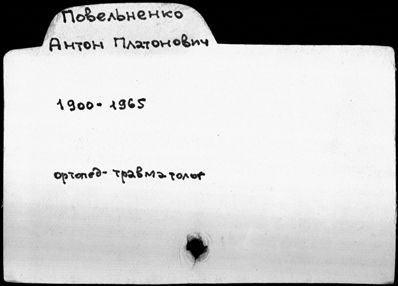 Повельненко
Антон Платонович
1900-1965
ортопед-травматолог